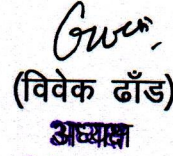 (विवेक ढाँड)
अध्यक्ष